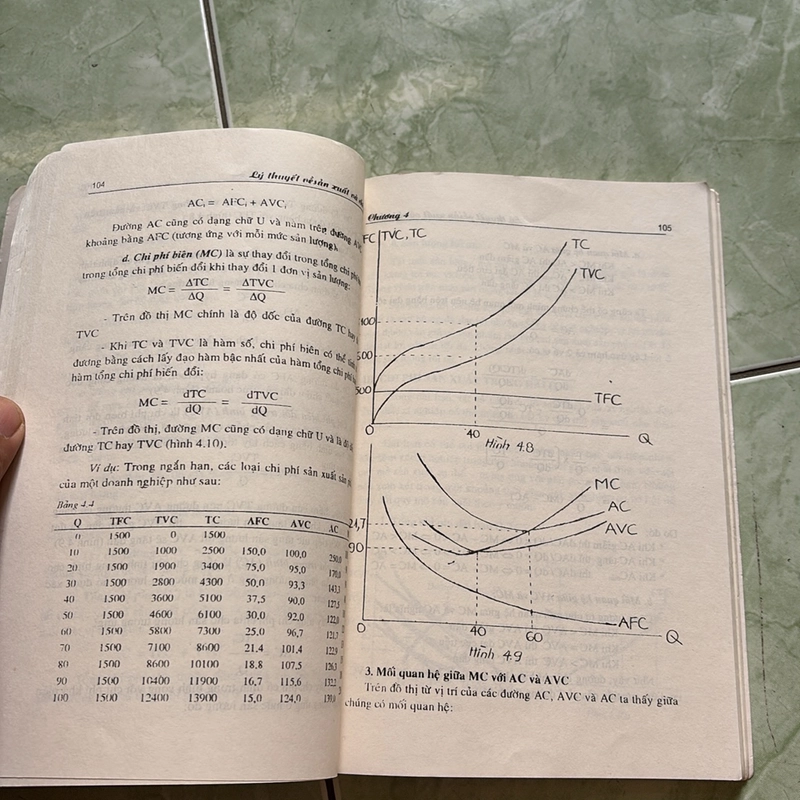 104
Lý thuyết về sản xuất và
ACi = AFCi + AVCi
Đường AC cũng có dạng chữ U và nằm trên đường
khoảng bằng AFC (tương ứng với mỗi mức sản lượng).
d. Chi phí biên (MC) là sự thay đổi trong tổng chi phí
trong tổng chi phí biến đổi khi thay đổi 1 đơn vị sản lượng:
MC = ΔTC/ΔQ = ΔTVC/ΔQ
- Trên đồ thị MC chính là độ dốc của đường TC hay
TVC
- Khi TC và TVC là hàm số, chi phí biên có thể
đương bằng cách lấy đạo hàm bậc nhất của hàm tổng chi phí
hàm tổng chi phí biến đổi:
MC = dTC/dQ = dTVC/dQ
- Trên đồ thị, đường MC cũng có dạng chữ U và là
đường TC hay TVC (hình 4.10).
Ví dụ: Trong ngắn hạn, các loại chi phí sản xuất sản
của một doanh nghiệp như sau:
Bảng 4.4
Q TFC TVC TC AFC AVC AC
0 1500 0 1500
10 1500 1000 2500 150,0 100,0 250,0
20 1500 1900 3400 75,0 95,0 170,0
30 1500 2800 4300 50,0 93,3 143,3
40 1500 3600 5100 37,5 90,0 127,5
50 1500 4600 6100 30,0 92,0 122,0
60 1500 5800 7300 25,0 96,7 121,7
70 1500 7100 8600 21,4 101,4 122,9
80 1500 8600 10100 18,8 107,5 126,3
90 1500 10400 11900 16,7 115,6 132,2
100 1500 12400 13900 15,0 124,0 139,0
Chương 4
105
FC TVC, TC
TC
TVC
TFC
0
40
Q
Hình 4.8
MC
AC
AVC
24,7
90
AFC
0
40
60
Q
Hình 4.9
3. Mối quan hệ giữa MC với AC và AVC
Trên đồ thị từ vị trí của các đường AC, AVC và AC ta thấy giữa
chúng có mối quan hệ: